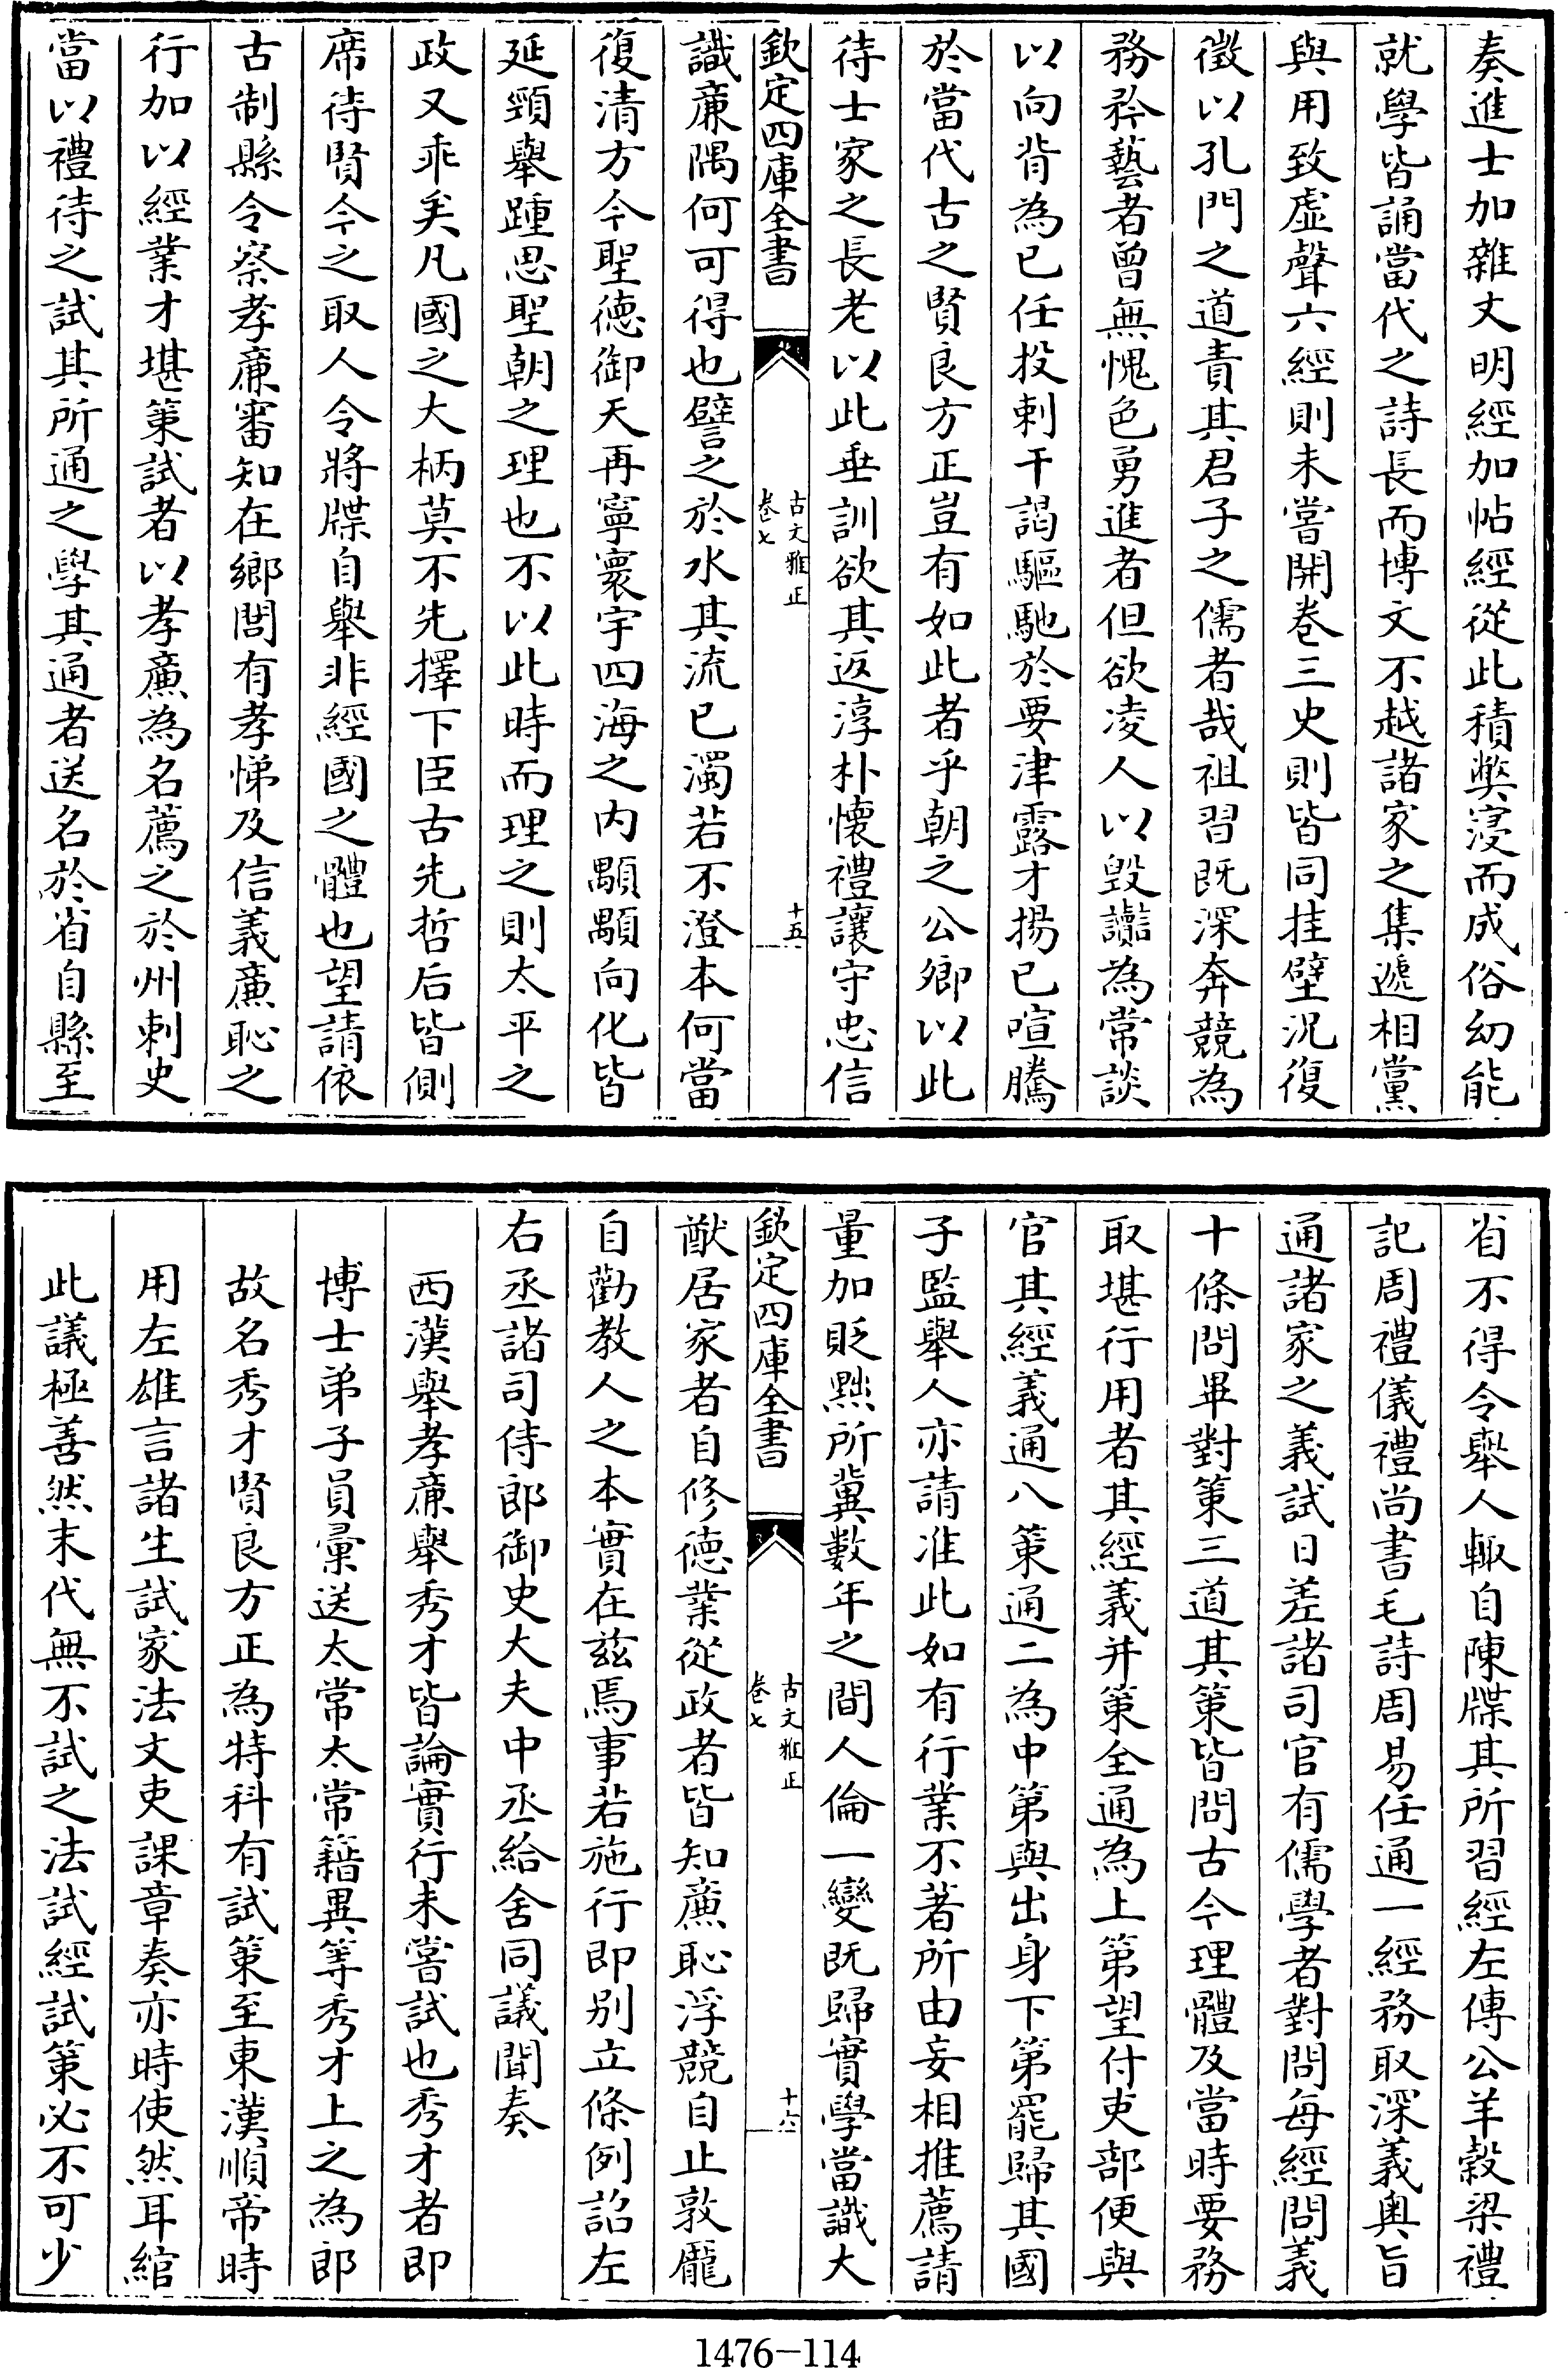 奏進士加雜文明經加帖經從此積弊寖而成俗幼能
就學皆誦當代之詩長而博文不越諸家之集遞相黨
與用致虛聲六經則未嘗開卷三史則皆同挂壁況復
徵以孔門之道責其君子之儒者哉祖習既深奔競為
務矜藝者曾無愧色勇進者但欲凌人以毀讟為常談
以向背為已任投刺干謁驅馳於要津露才揚已喧騰
於當代古之賢良方正豈有如此者乎朝之公卿以此
待士家之長老以此垂訓欲其返淳朴懷禮讓守忠信
欽定四庫全書
古文雅正
卷七
十五
識廉隅何可得也譬之於水其流已濁若不澄本何當
復清方今聖德御天再寧寰宇四海之内顒顒向化皆
延頸舉踵思聖朝之理也不以此時而理之則太平之
政又乖矣凡國之大柄莫不先擇下臣古先哲后皆側
席待賢今之取人令將牒自舉非經國之體也望請依
古制縣令察孝廉審知在鄉閭有孝悌及信義廉恥之
行加以經業才堪策試者以孝廉為名薦之於州刺史
當以禮待之試其所通之學其通者送名於省自縣至
省不得令舉人輙自陳牒其所習經左傳公羊穀梁禮
記周禮儀禮尚書毛詩周易任通一經務取深義奥旨
通諸家之義試日差諸司官有儒學者對問每經問義
十條問畢對策三道其策皆問古今理體及當時要務
取堪行用者其經義并策全通為上第望付吏部便與
官其經義通八策通二為中第與出身下第罷歸其國
子監舉人亦請准此如有行業不著所由妄相推薦請
量加貶黜所冀數年之間人倫一變既歸實學當識大
欽定四庫全書
古文雅正
卷七
十六
猷居家者自修德業從政者皆知廉恥浮競自止敦龎
自勸教人之本實在兹焉事若施行即别立條例詔左
右丞諸司侍郎御史大夫中丞給舍同議聞奏
西漢舉孝廉舉秀才皆論實行未嘗試也秀才者即
博士弟子員彙送太常太常籍異等秀才上之為郎
故名秀才賢良方正為特科有試策至東漢順帝時
用左雄言諸生試家法文吏課章奏亦時使然耳綰
此議極善然末代無不試之法試經試策必不可少
1476-114